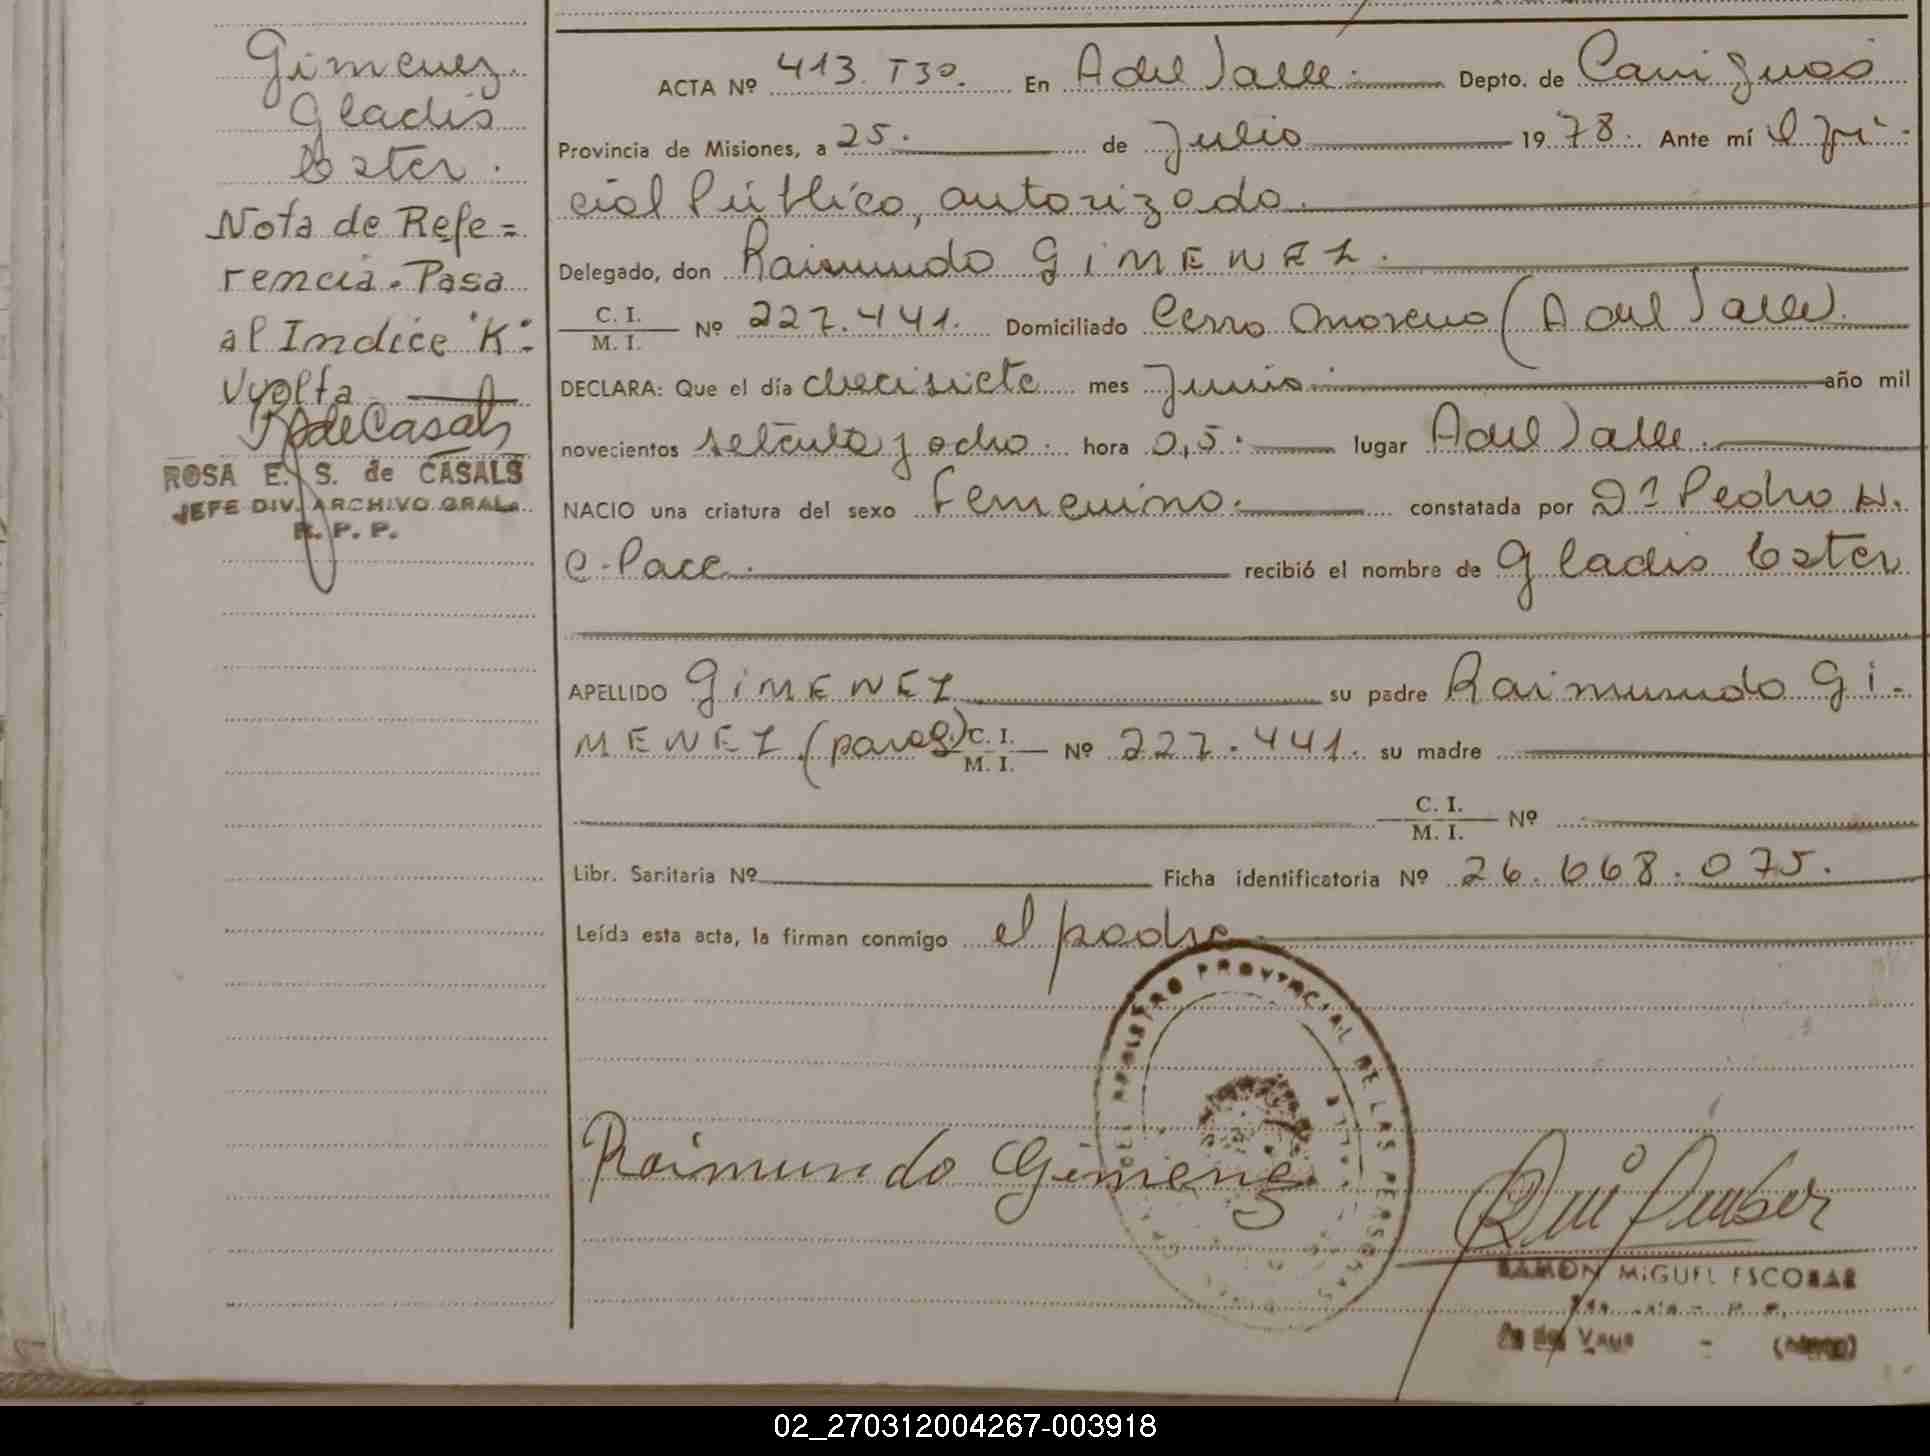 Gimenez
Gladis
Ester.
Nota de Refe=
rencia. Pasa
al Indice "K":
Vuelta
RdeCasals
ROSA E. S. de CASALS
JEFE DIV. ARCHIVO GRAL.
R. P. P.
ACTA Nº 413. T3º. En A del Valle. Depto. de Cainguás
Provincia de Misiones, a 25. de Julio 1978. Ante mí el ofi-
cial Público, autorizado.
Delegado, don Raimundo GIMENEZ.
C. I.
M. I. Nº 227.441. Domiciliado Cerro Moreno (A del Valle)
DECLARA: Que el día diecisiete mes Junio año mil
novecientos setenta y ocho. hora 0,5. lugar A del Valle.
NACIO una criatura del sexo femenino. constatada por Dº Pedro H.
C. Pace. recibió el nombre de Gladis Ester
APELLIDO GIMENEZ su padre Raimundo GI-
MENEZ (parag.) C. I.
M. I. Nº 227.441. su madre
C. I.
M. I. Nº
Libr. Sanitaria Nº Ficha identificatoria Nº 26.668.075.
Leída esta acta, la firman conmigo el padre
REGISTRO PROVINCIAL DE LAS PERSONAS
Raimundo Gimenez
RAMON MIGUEL ESCOBAR
02_270312004267-003918